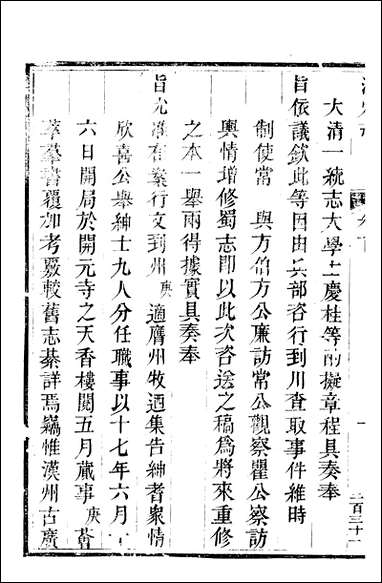 大清一統志大學士慶桂等酌擬章程具奏奉
旨依議欽此等因由兵部咨行到川查取事件維時
制使常　與方伯方公廉訪常公觀察瞿公察訪
輿情增修蜀志即以此次咨送之稿為將來重修
之本一舉兩得據實具奏奉
旨允准在案行文到州庚適膺州牧廼集告紳耆眾情
欣喜公舉紳士九人分任職事以十七年六月十
六日開局於開元寺之天香樓閱五月蕆事庚薈
萃羣書覆加考覈較舊志綦詳焉竊惟漢州古廣